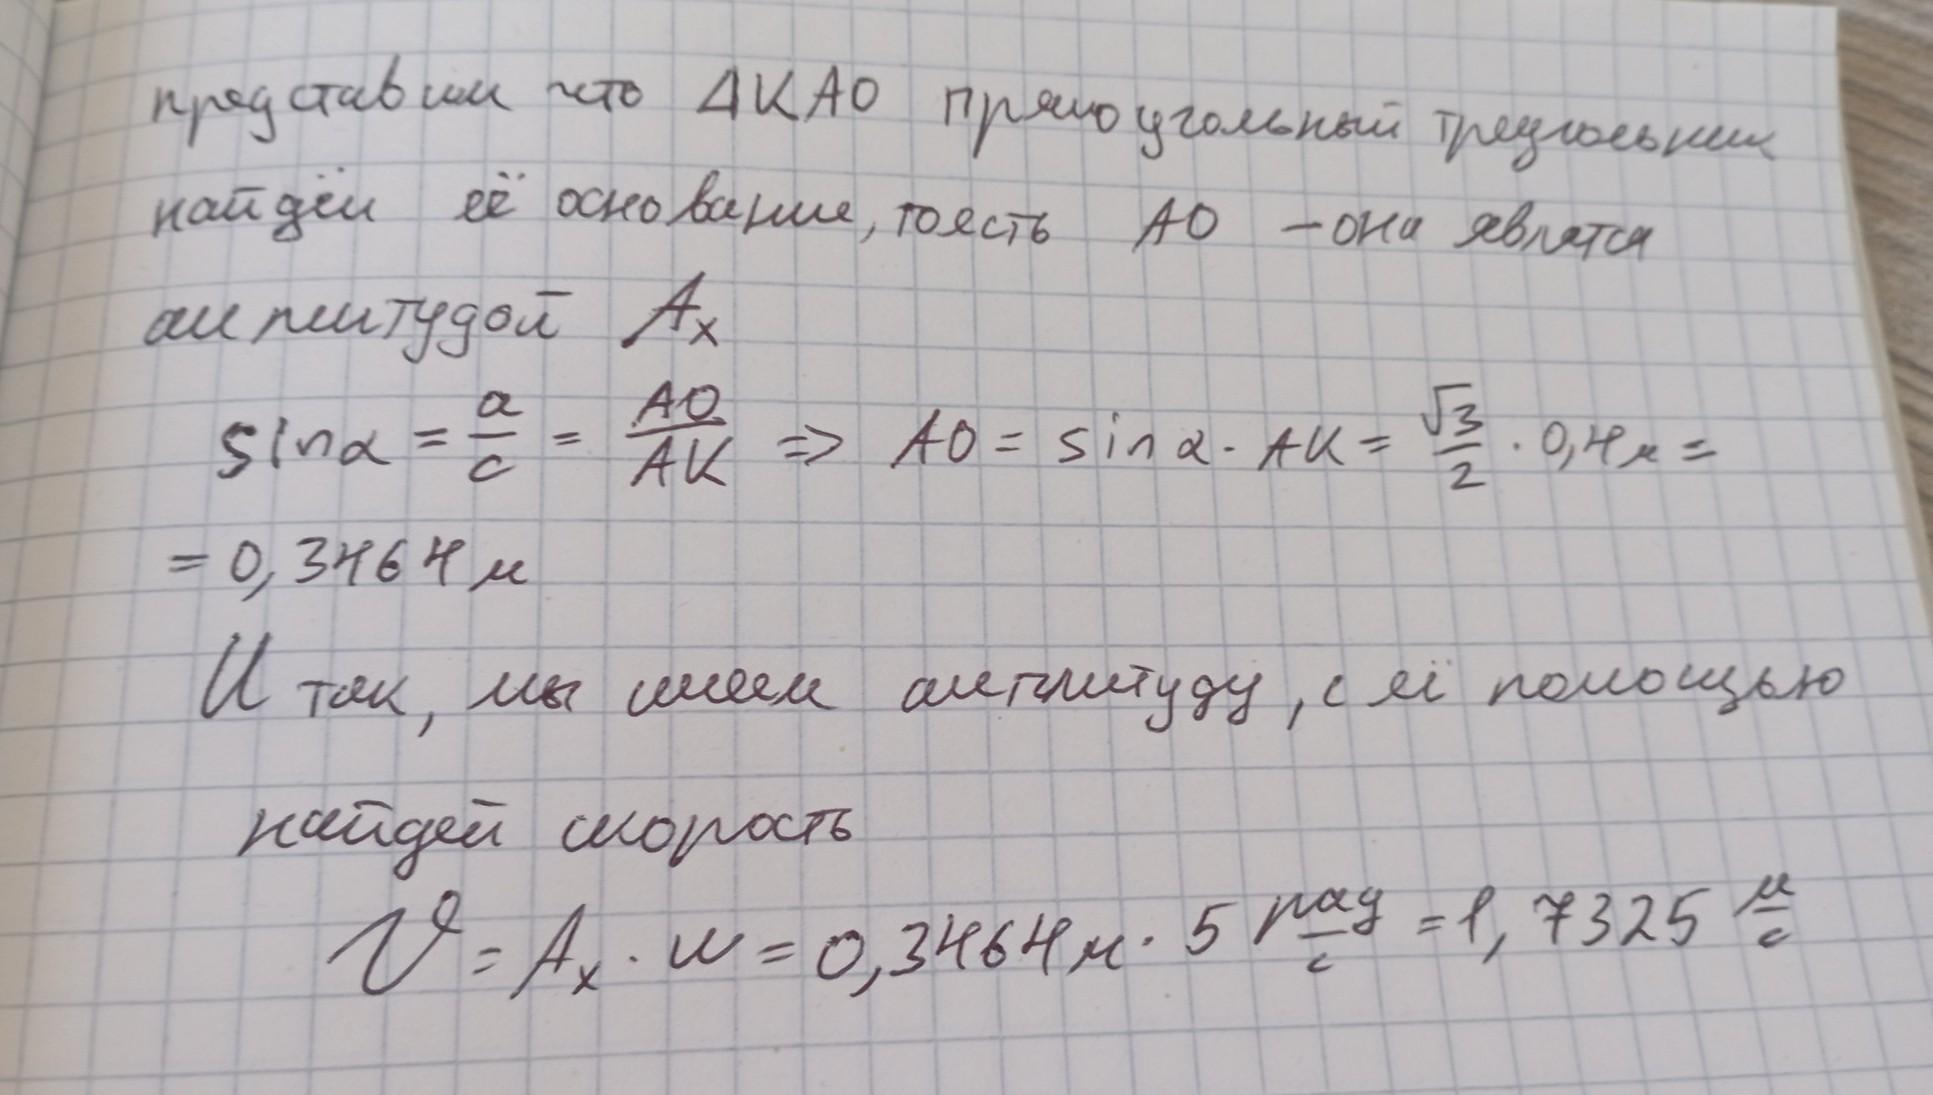 представим что ΔKAO прямоугольный треугольник
найдём её основание, тоесть AO – она являтся
амплитудой Aₓ
sinα = a/c = AO/AK => AO = sinα · AK = √3/2 · 0,4м =
= 0,3464м
И так, мы имеем амплитуду, с её помощью
найдей скорость
V = Aₓ · w = 0,3464м · 5 рад/с = 1,7325 м/с